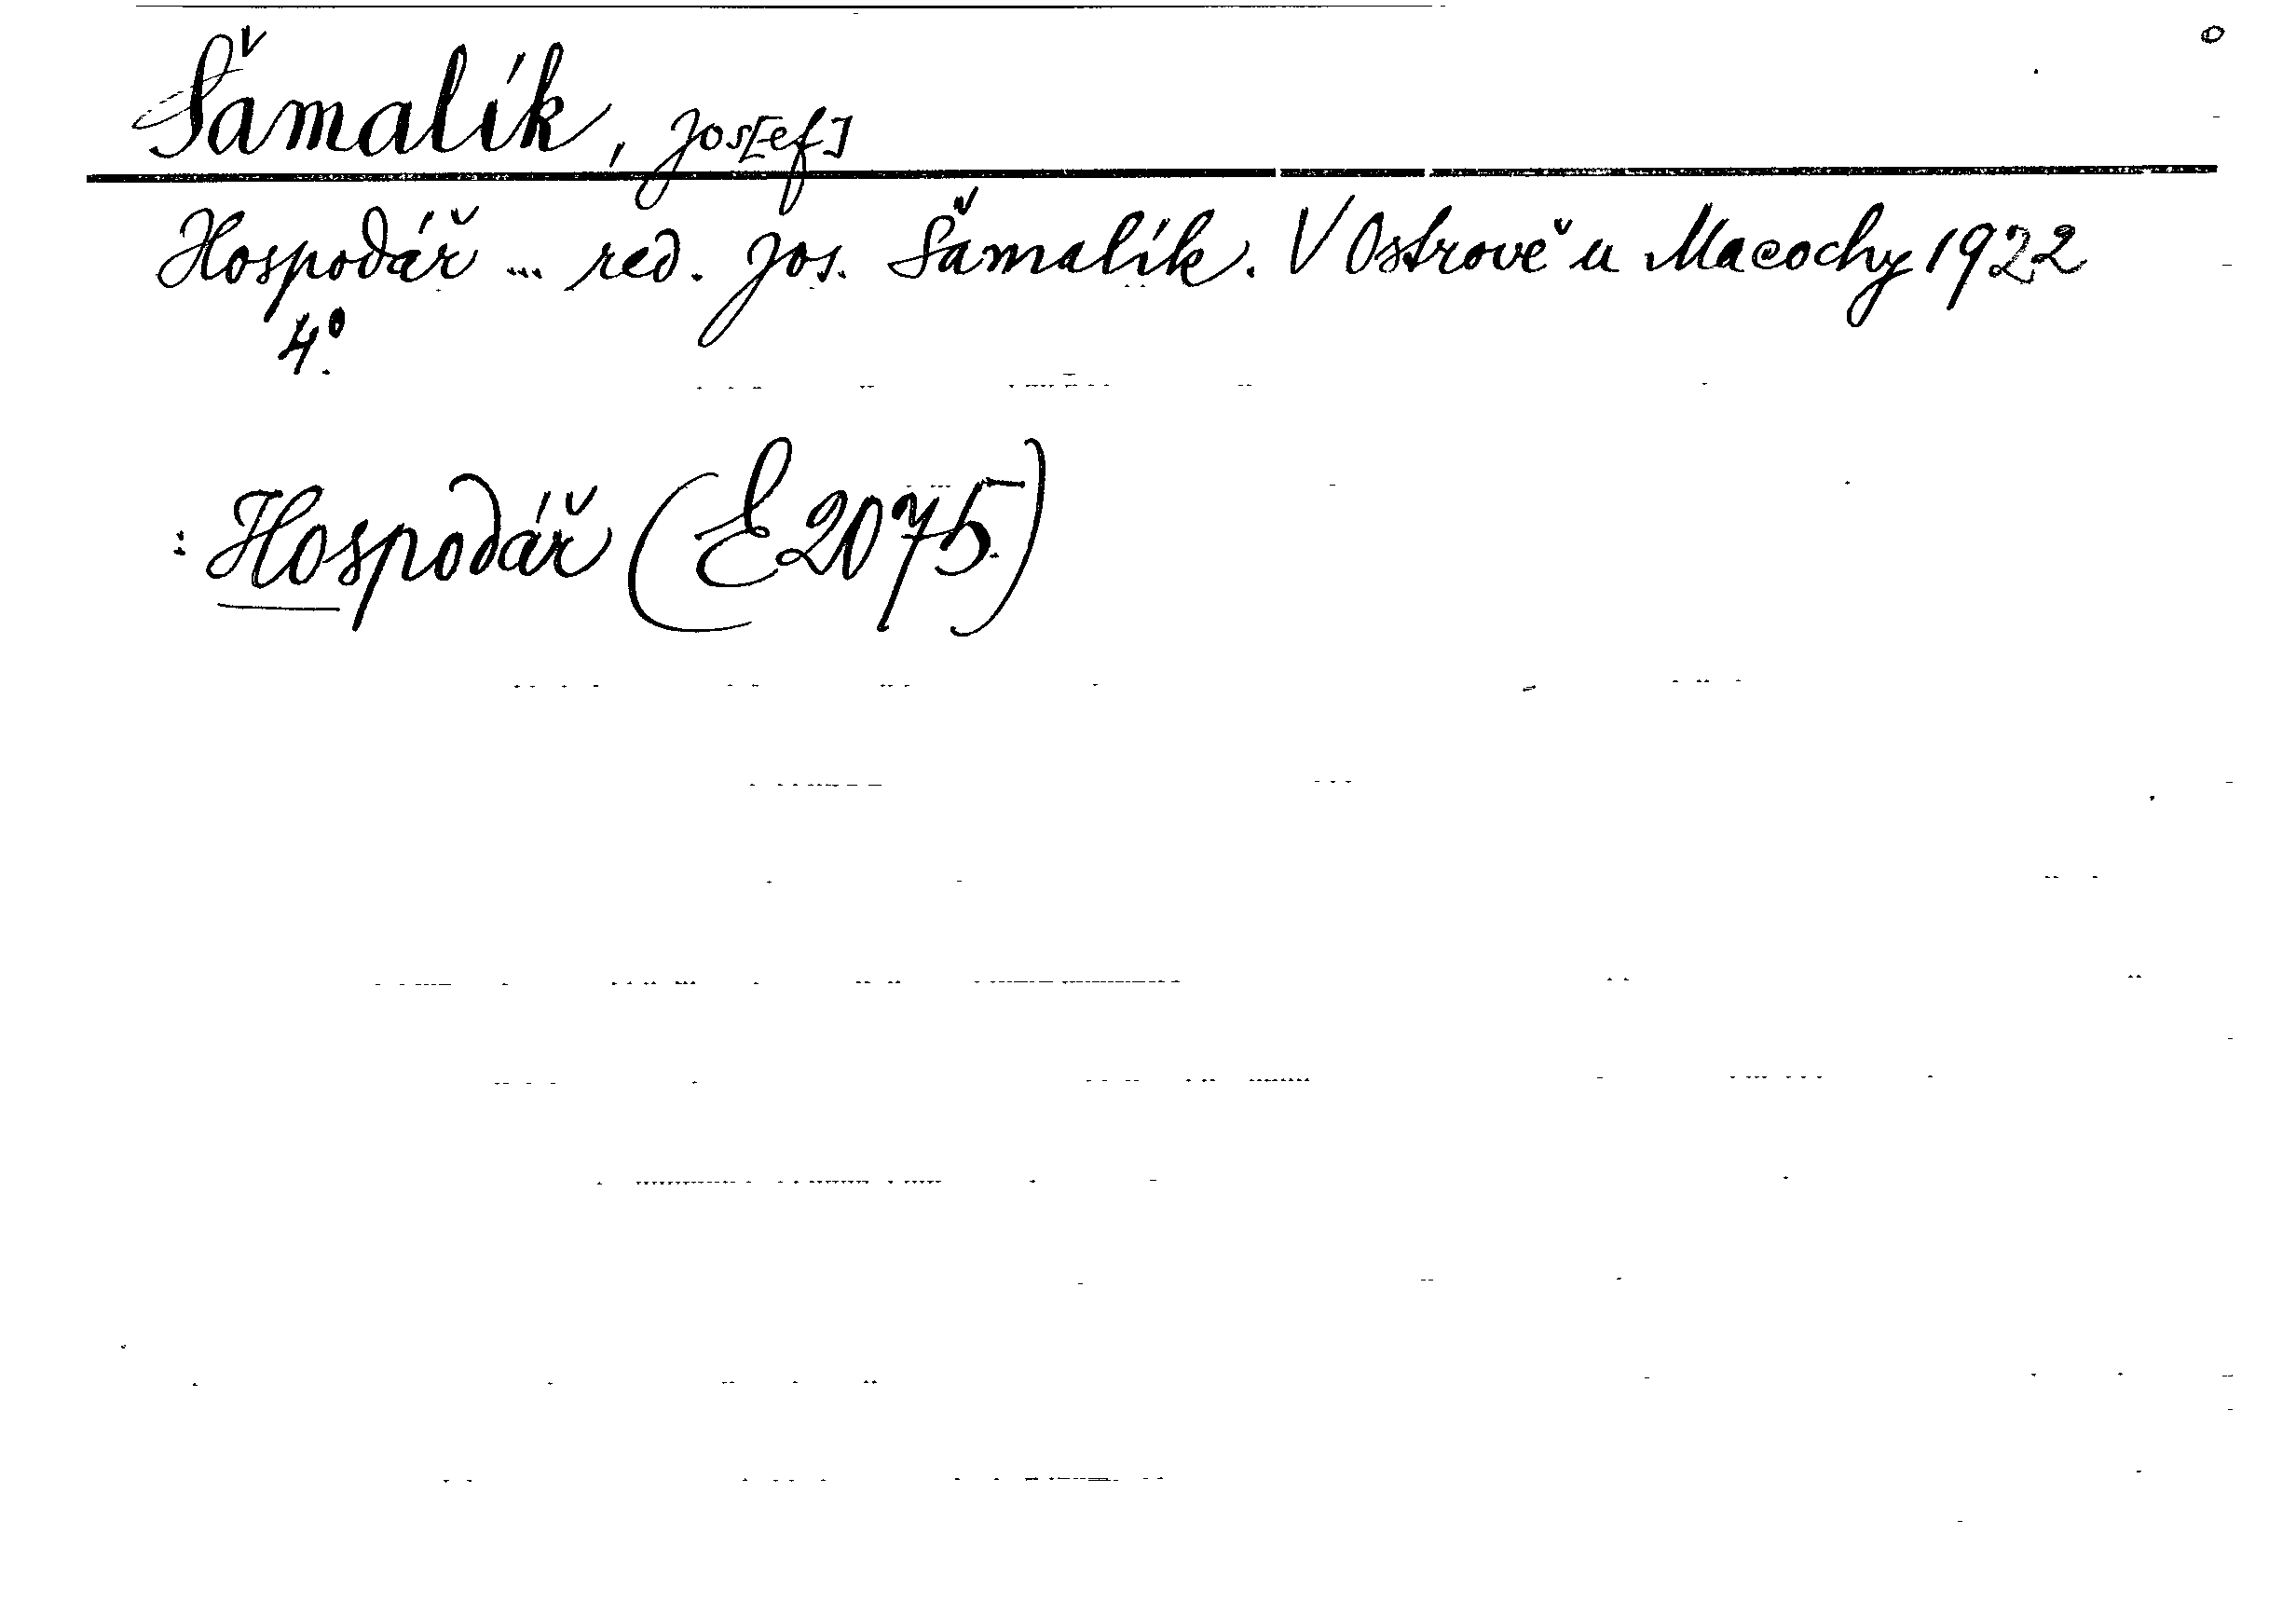 Šamalík, Jos[ef]
Hospodář ... red. Jos. Šamalík. V Ostrově u Macochy 1922
4°.
: Hospodář (E 2075.)